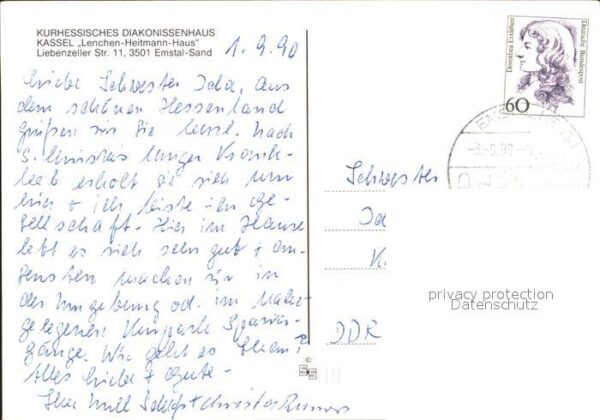 KURHESSISCHES DIAKONISSENHAUS
KASSEL „Lenchen-Heitmann-Haus"
Liebenzeller Str. 11, 3501 Emstal-Sand
1.9.90
Liebe Schwester Ida, aus
dem schönen Hessenland
grüßen wir Sie herzl. Nach
S. Christas langer Krank-
heit erholt sie sich nun
hier + ich leiste ihr Ge-
sellschaft. Hier im Hause
lebt es sich sehr gut + am
machen wir in
der Umgebung od. im nahe-
gelegenen Kurpark Spazier-
gänge. Wie geht es Ihnen?
Alles Liebe + Gute -
Ihre
Dorothea Erxleben
Deutsche Bundespost
60
EMSTAL
-3.-9.90
Schwester
Id
DDR
privacy protection
Datenschutz